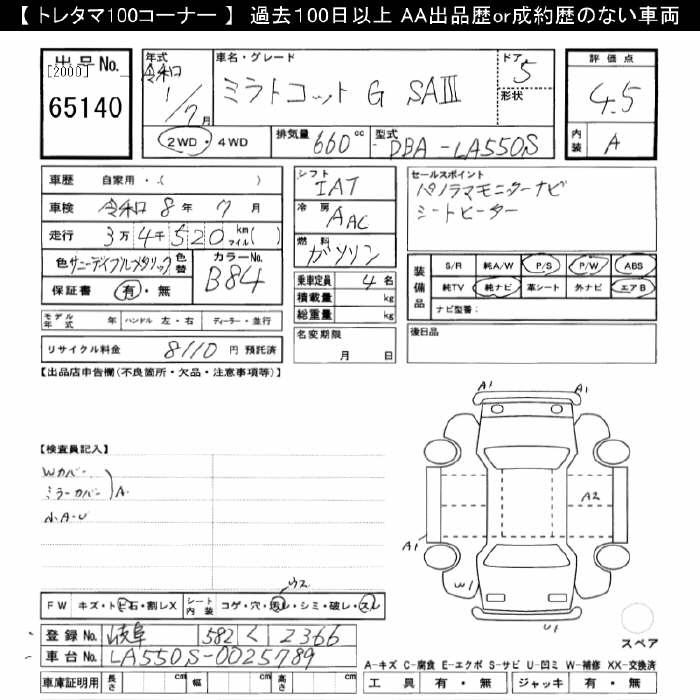 【 トレタマ100コーナー 】 過去100日以上 AA出品歴or成約歴のない車両
出品No.
[2000]
65140
年式
令和
1/7月
車名・グレード
ミラトコット G SAⅢ
ドア
5
形状
評価点
4.5
内装
A
2WD・4WD
排気量 660 cc
型式 DBA-LA550S
車歴 自家用・( )
車検 令和 8年 7月
走行 3万4千520 km マイル( )
色 サニーデイブルーメタリック
色替
カラーNo.
B84
保証書 有・無
モデル年式 年 ハンドル 左・右 ディーラー・並行
リサイクル料金 8110 円 預託済
シフト
IAT
冷房
AAC
燃料
ガソリン
乗車定員 4名
積載量 kg
総重量 kg
名変期限
月 日
セールスポイント
パノラマモニターナビ
シートヒーター
装備品
S/R 純A/W P/S P/W ABS
純TV 純ナビ 革シート 外ナビ エアB
ナビ型番:
後日品
【出品店申告欄(不良箇所・欠品・注意事項等)】
【検査員記入】
Wカバー
ミラーカバー A
小A-U
ウス
FW キズ・トビ石・割レX
シート内装 コゲ・穴・汚レ・シミ・破レ・スレ
登録No. 岐阜 582 く 2366
車台No. LA550S-0025789
車庫証明用 長さ cm 幅 cm 高さ cm
A1
A1
A2
A1
W1
U1
スペア
A-キズ C-腐食 E-エクボ S-サビ U-凹ミ W-補修 XX-交換済
工具 有・無 ジャッキ 有・無